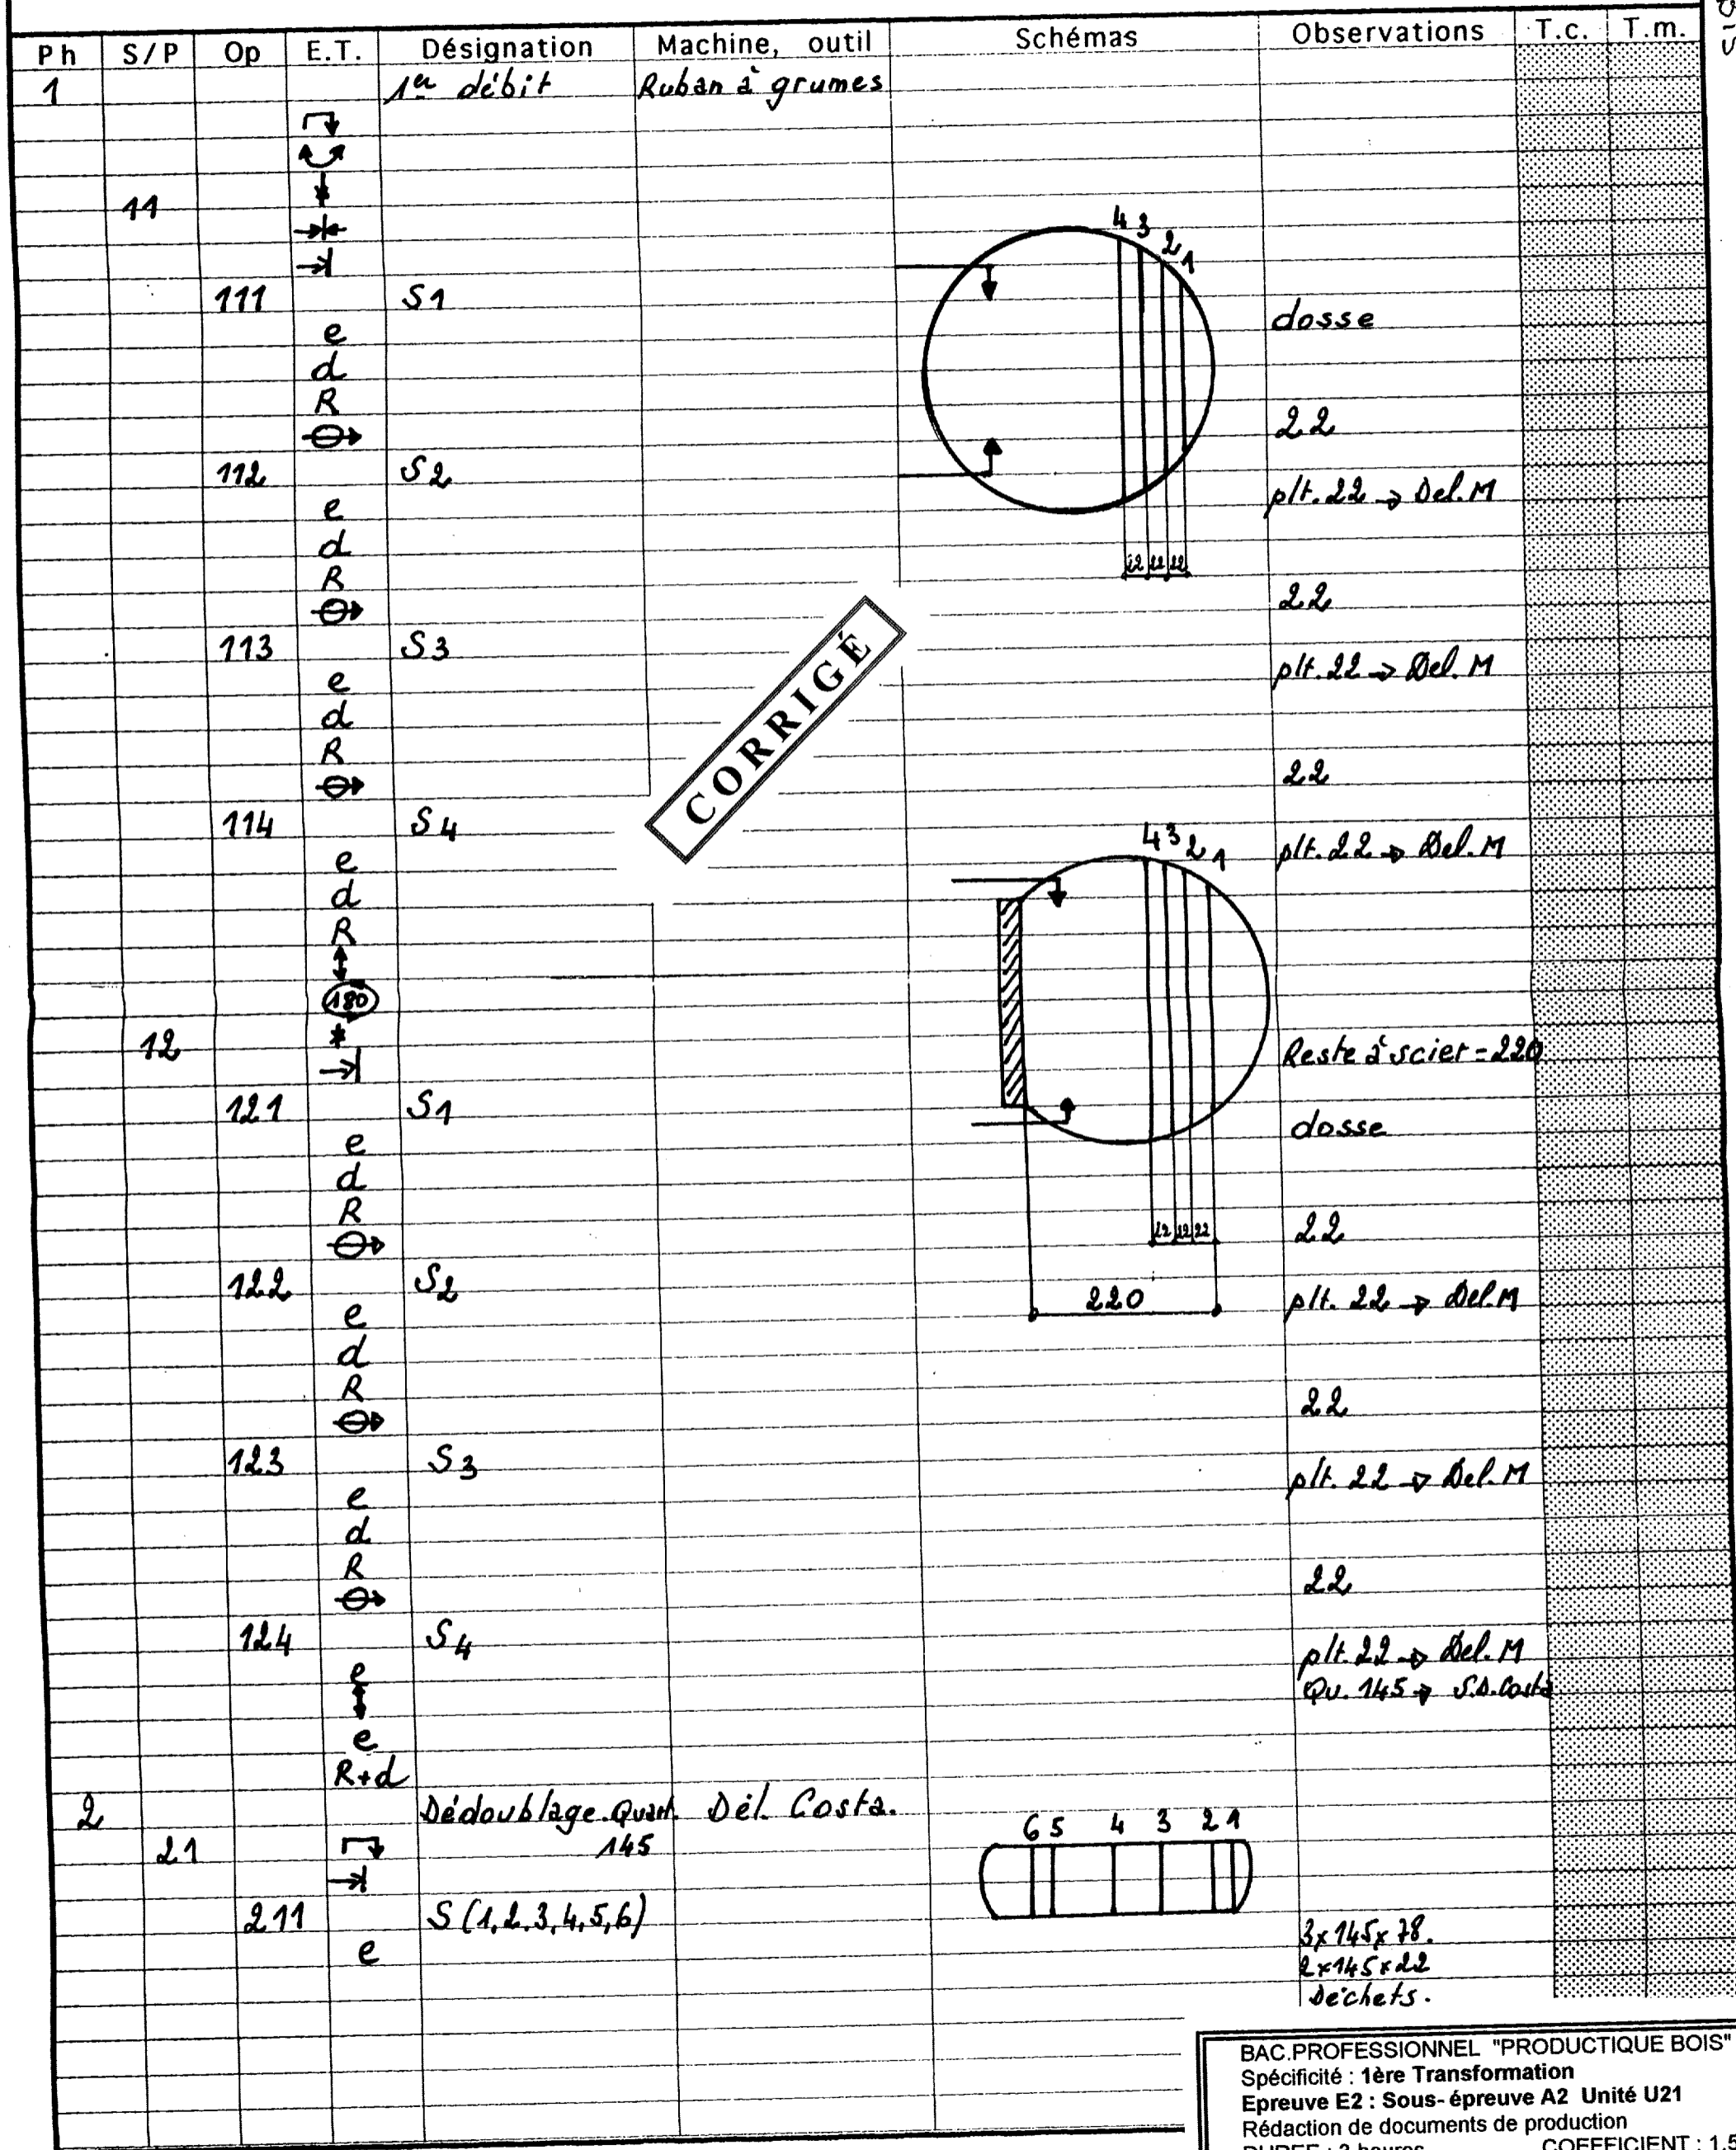 Ph S/P Op E.T. Désignation Machine, outil Schémas Observations T.c. T.m.
1 1er débit Ruban à grumes
11
4 3 2 1
111 S1
dosse
e
d
R
22
112 S2
plt. 22 → Del. M
e
d
22 22 22
R
22
113 S3
plt. 22 → Del. M
e
d
R
22
CORRIGÉ
114 S4
4 3 2 1
plt. 22 → Del. M
e
d
R
180
12
Reste à scier = 220
121 S1
dosse
e
d
R
22 22 22
22
122 S2
220
plt. 22 → Del. M
e
d
R
22
123 S3
plt. 22 → Del. M
e
d
R
22
124 S4
plt. 22 → Del. M
e
Qu. 145 → S.D. Costa
e
R+d
2 Dédoublage. Quart. Dél. Costa.
6 5 4 3 2 1
21 145
211 S (1, 2, 3, 4, 5, 6)
3x145x78.
e
2x145x22
Déchets.
BAC.PROFESSIONNEL "PRODUCTIQUE BOIS"
Spécificité : 1ère Transformation
Epreuve E2 : Sous- épreuve A2 Unité U21
Rédaction de documents de production
DUREE : 3 heures COEFFICIENT : 1.5